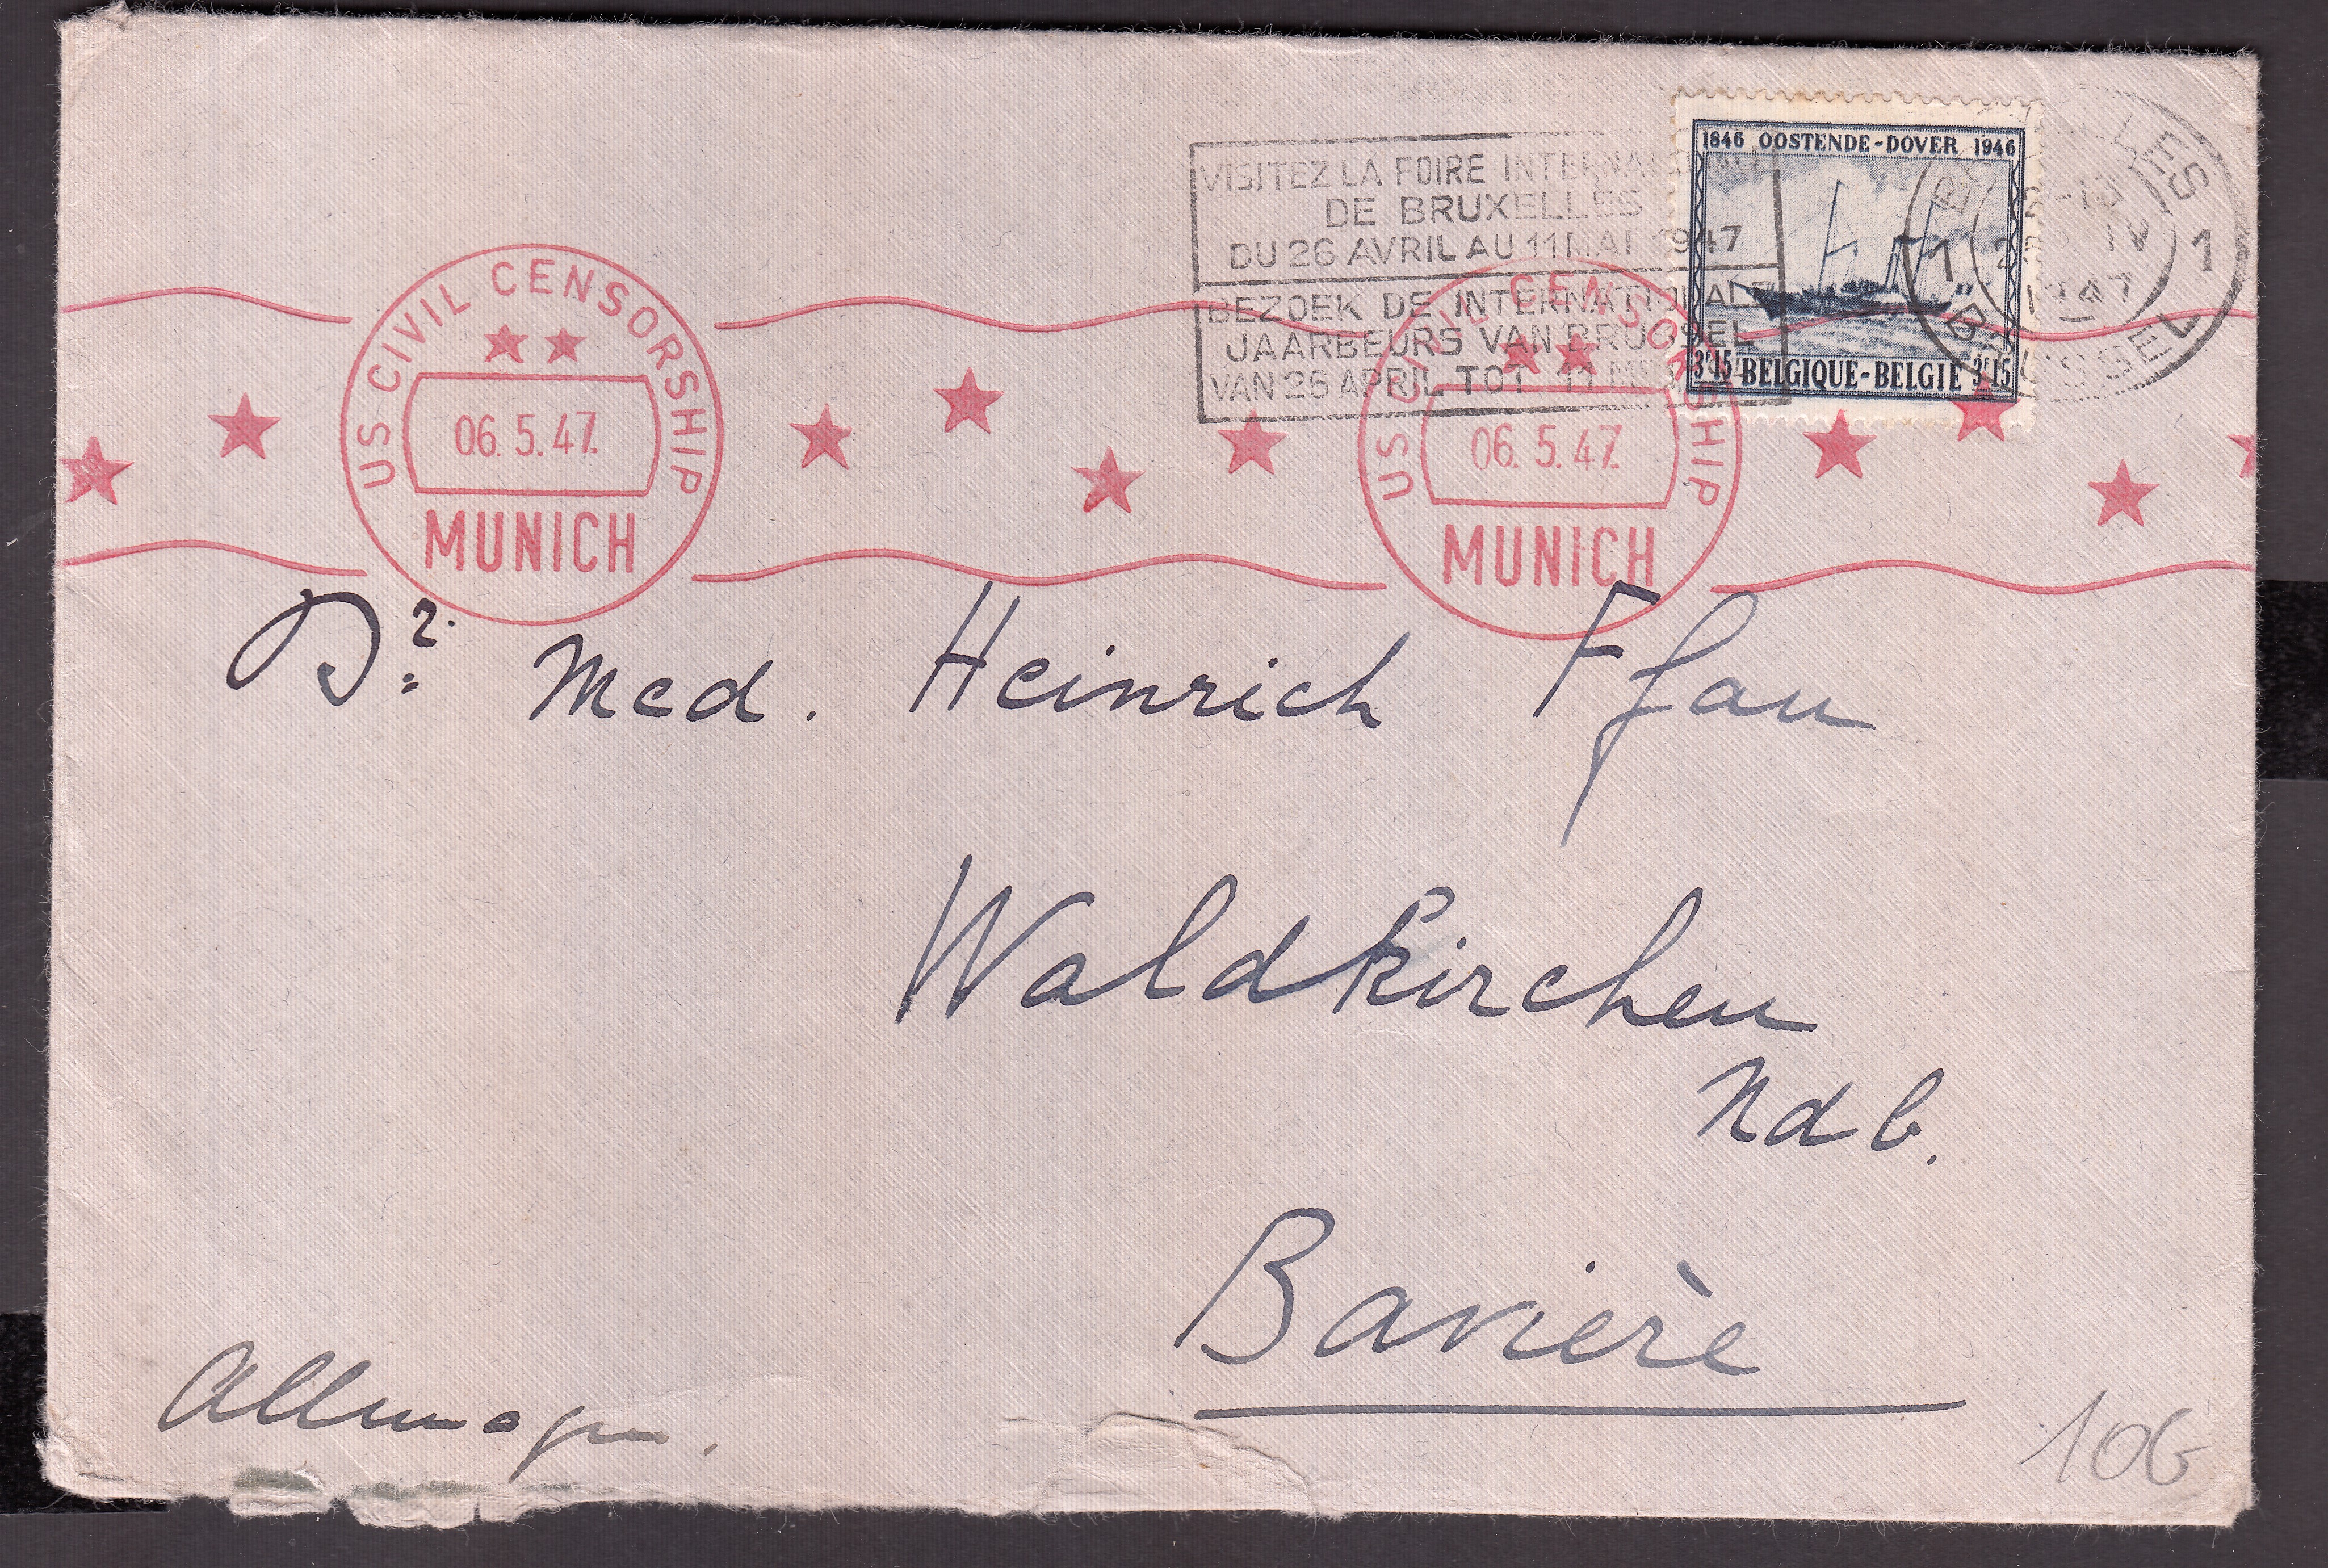 VISITEZ LA FOIRE INTERNATIONALE
DE BRUXELLES
DU 26 AVRIL AU 11 MAI 1947
BEZOEK DE INTERNATIONALE
JAARBEURS VAN BRUSSEL
VAN 26 APRIL TOT 11
1846 OOSTENDE-DOVER 1946
3F15 BELGIQUE-BELGIE 3F15
BRUXELLES
1 1
IV
1947
BRUSSEL
US CIVIL CENSORSHIP
06.5.47.
MUNICH
US CIVIL CENSORSHIP
06.5.47.
MUNICH
Dr. Med. Heinrich Pfau
Waldkirchen
Ndb.
Bavière
Allemagne.
106